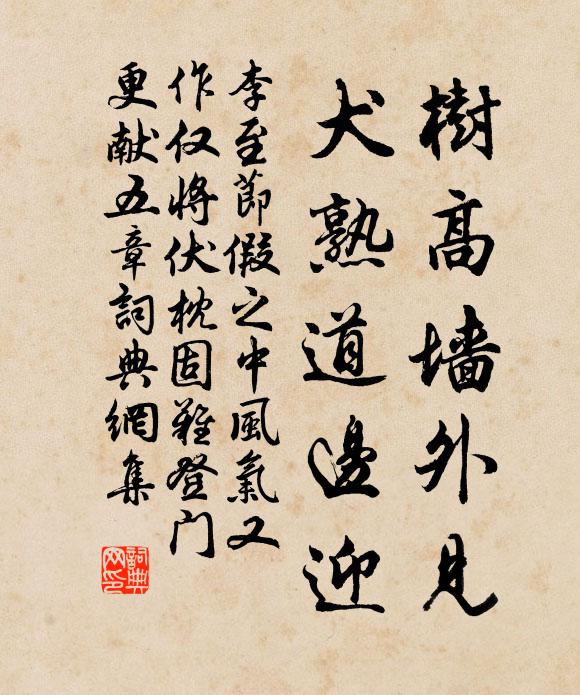 樹高墙外見
犬熟道邊迎
李至節假之中風氣又
作仅將伏枕固難登门
更献五章詞典網集
詞典网印